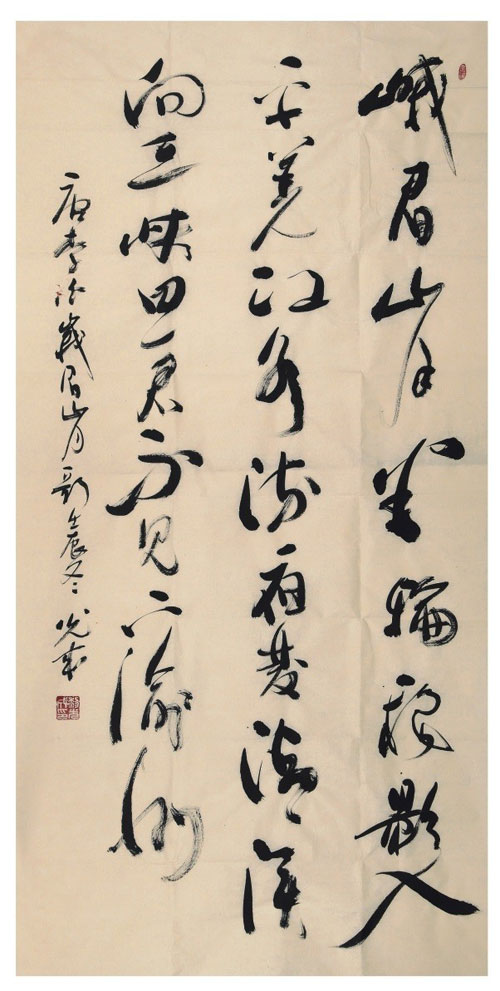 峨眉山月半輪秋影入
平羌江水流夜發清溪
向三峽思君不見下渝州
唐李白峨眉山月歌壬辰冬